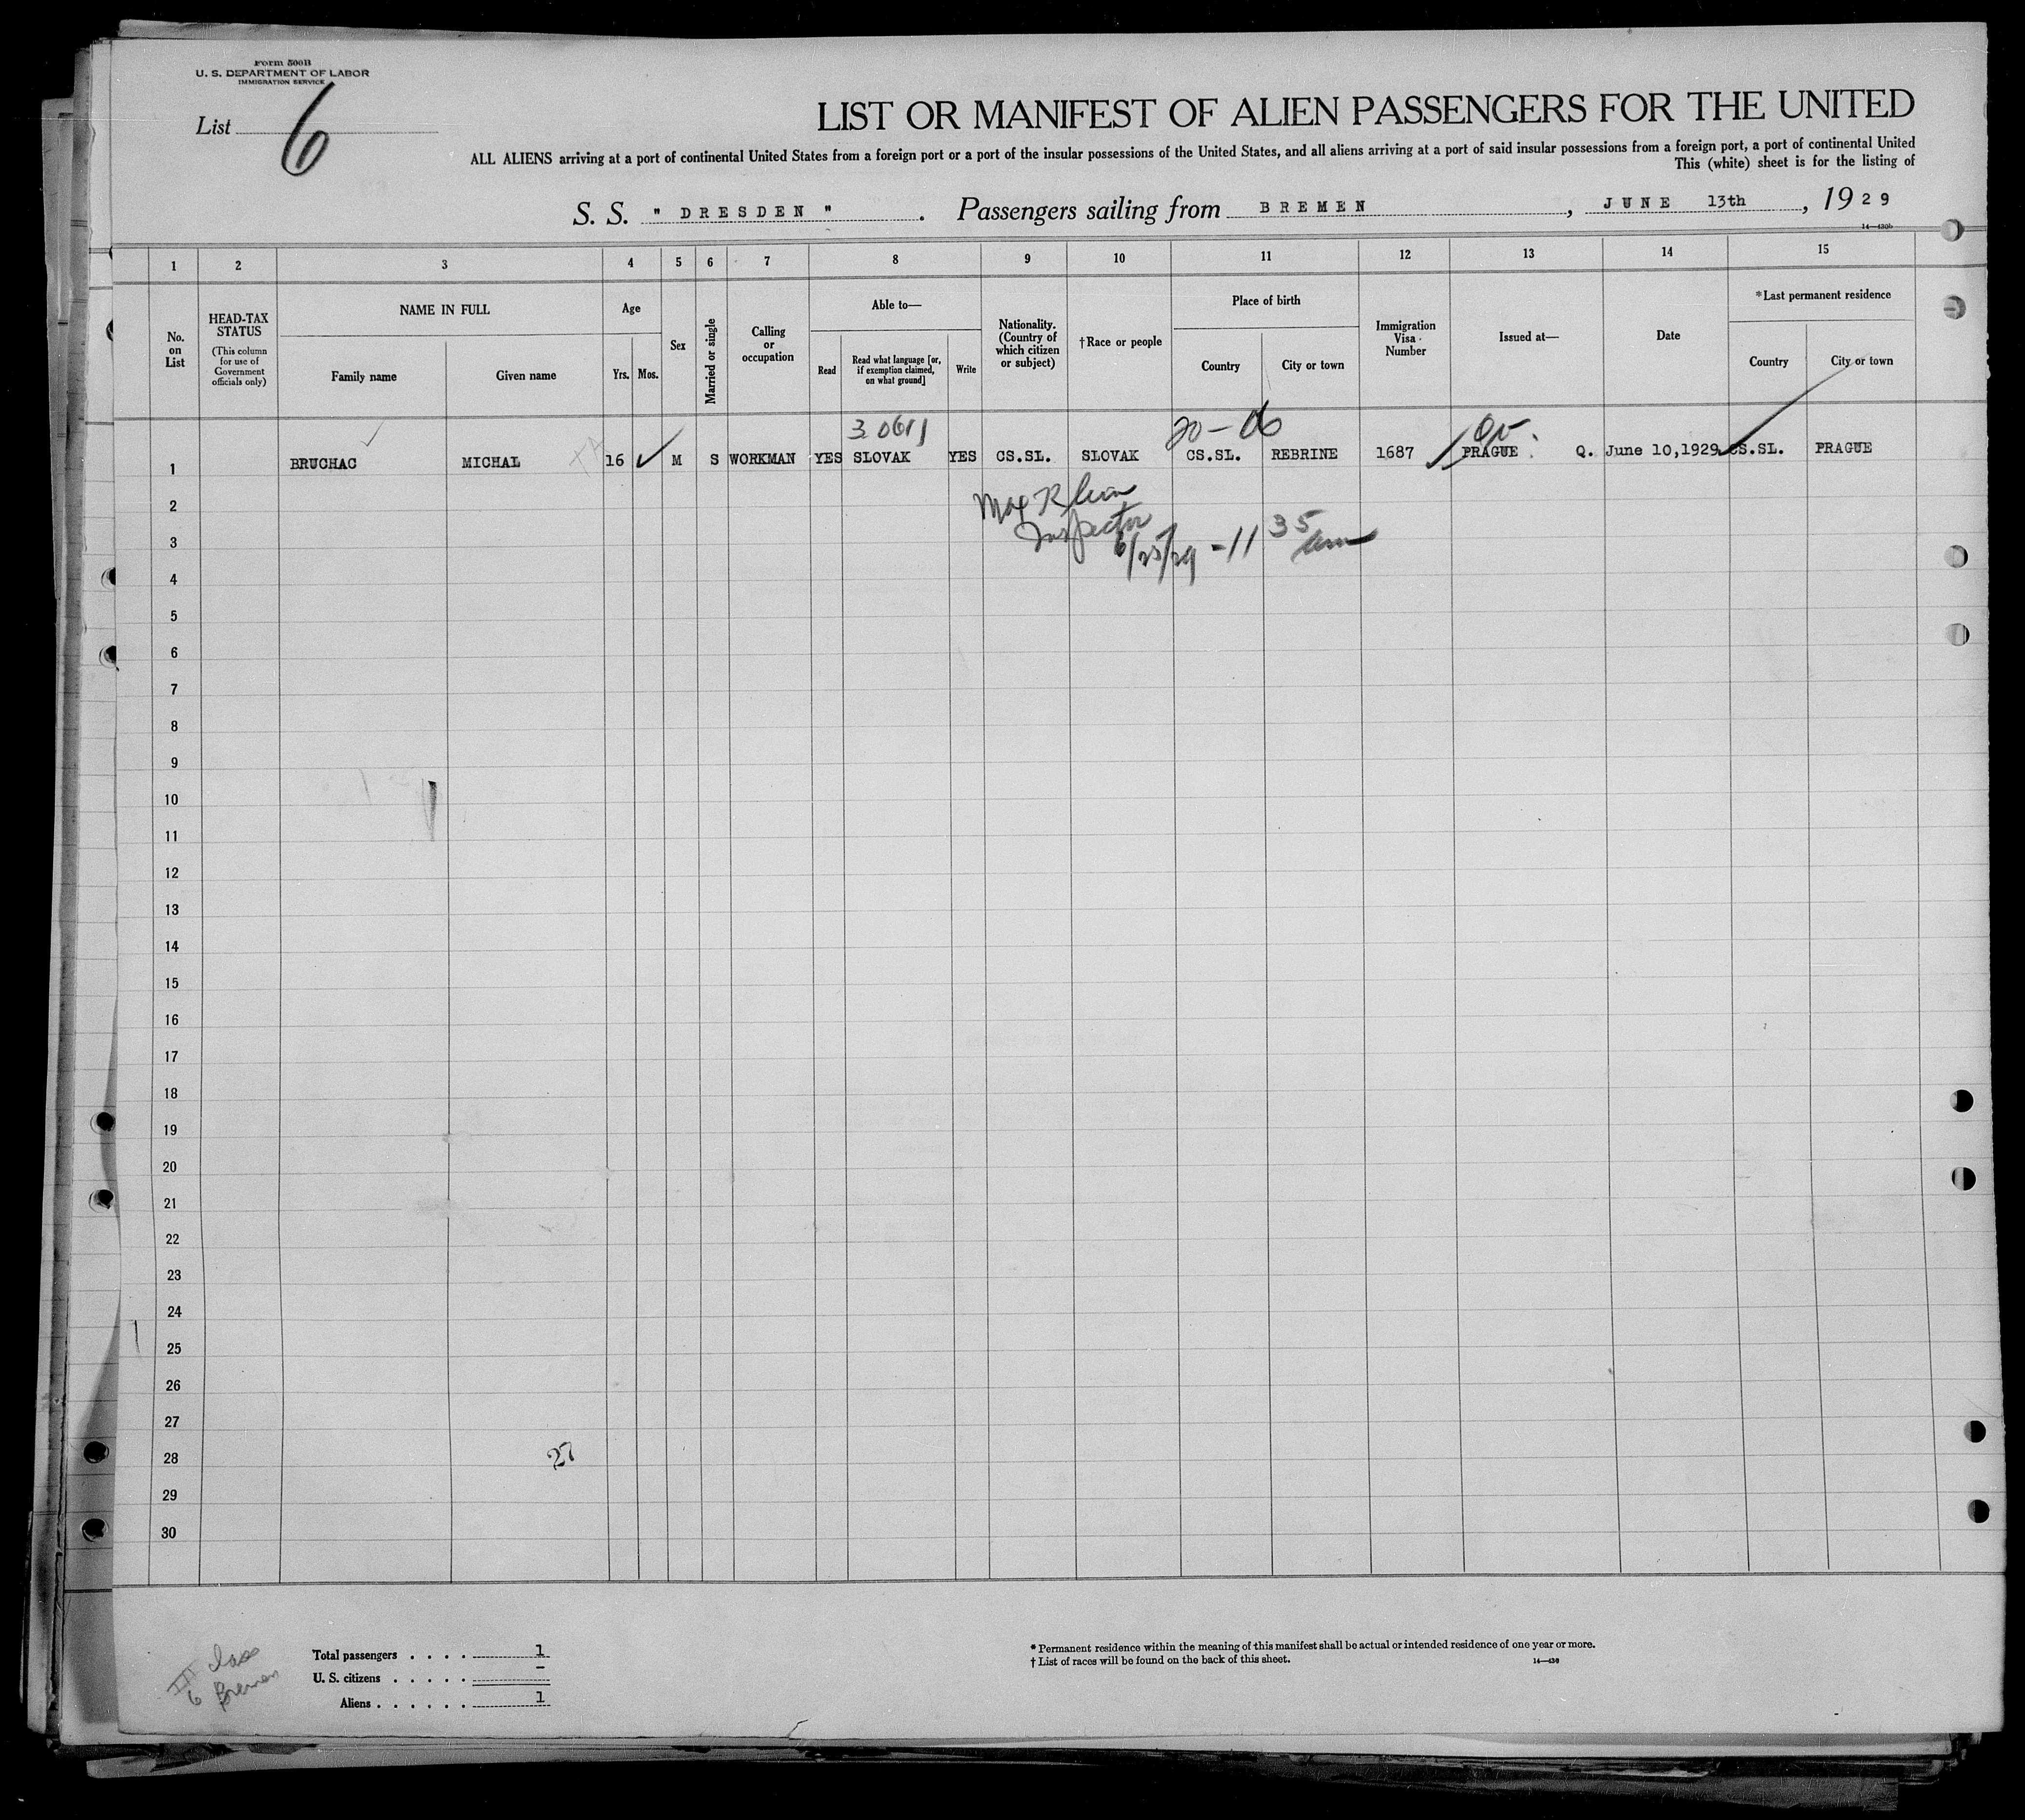 Form 500B
U. S. DEPARTMENT OF LABOR
IMMIGRATION SERVICE
List 6
LIST OR MANIFEST OF ALIEN PASSENGERS FOR THE UNITED
ALL ALIENS arriving at a port of continental United States from a foreign port or a port of the insular possessions of the United States, and all aliens arriving at a port of said insular possessions from a foreign port, a port of continental United
This (white) sheet is for the listing of
S. S. " DRESDEN " . Passengers sailing from BREMEN , JUNE 13th , 1929
14—430b
1 2 3 4 5 6 7 8 9 10 11 12 13 14 15
No. on List
HEAD-TAX STATUS
(This column for use of Government officials only)
NAME IN FULL
Family name
Given name
Age
Yrs. Mos.
Sex
Married or single
Calling or occupation
Able to—
Read
Read what language [or, if exemption claimed, on what ground]
Write
Nationality. (Country of which citizen or subject)
†Race or people
Place of birth
Country
City or town
Immigration Visa Number
Issued at—
Date
*Last permanent residence
Country
City or town
20-06
1 BRUCHAC MICHAL 16 M S WORKMAN YES SLOVAK YES CS.SL. SLOVAK CS.SL. REBRINE 1687 PRAGUE Q. June 10,1929 CS.SL. PRAGUE
2
Inspector
3
6/25/29 - 11 35 am
4
5
6
7
8
9
10
11
12
13
14
15
16
17
18
19
20
21
22
23
24
25
26
27
28 27
29
30
Total passengers . . . . 1
U. S. citizens . . . . . -
Aliens . . . . . . 1
* Permanent residence within the meaning of this manifest shall be actual or intended residence of one year or more.
† List of races will be found on the back of this sheet. 14—430
class
Bremen